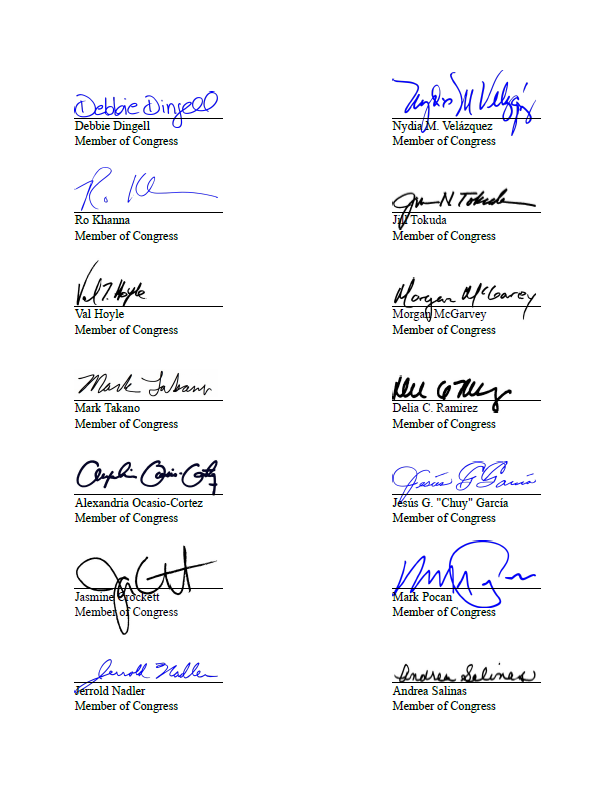 Debbie Dingell
Debbie Dingell
Member of Congress
Nydia M Velázquez
Nydia M. Velázquez
Member of Congress
R. Kh
Ro Khanna
Member of Congress
Jill N Tokuda
Jill Tokuda
Member of Congress
Val T. Hoyle
Val Hoyle
Member of Congress
Morgan McGarvey
Morgan McGarvey
Member of Congress
Mark Takano
Mark Takano
Member of Congress
Delia C. Ramirez
Member of Congress
Alexandria Ocasio-Cortez
Member of Congress
Jesús G García
Jesús G. "Chuy" García
Member of Congress
Jasmine Crockett
Member of Congress
Mark Pocan
Member of Congress
Jerrold Nadler
Jerrold Nadler
Member of Congress
Andrea Salinas
Andrea Salinas
Member of Congress